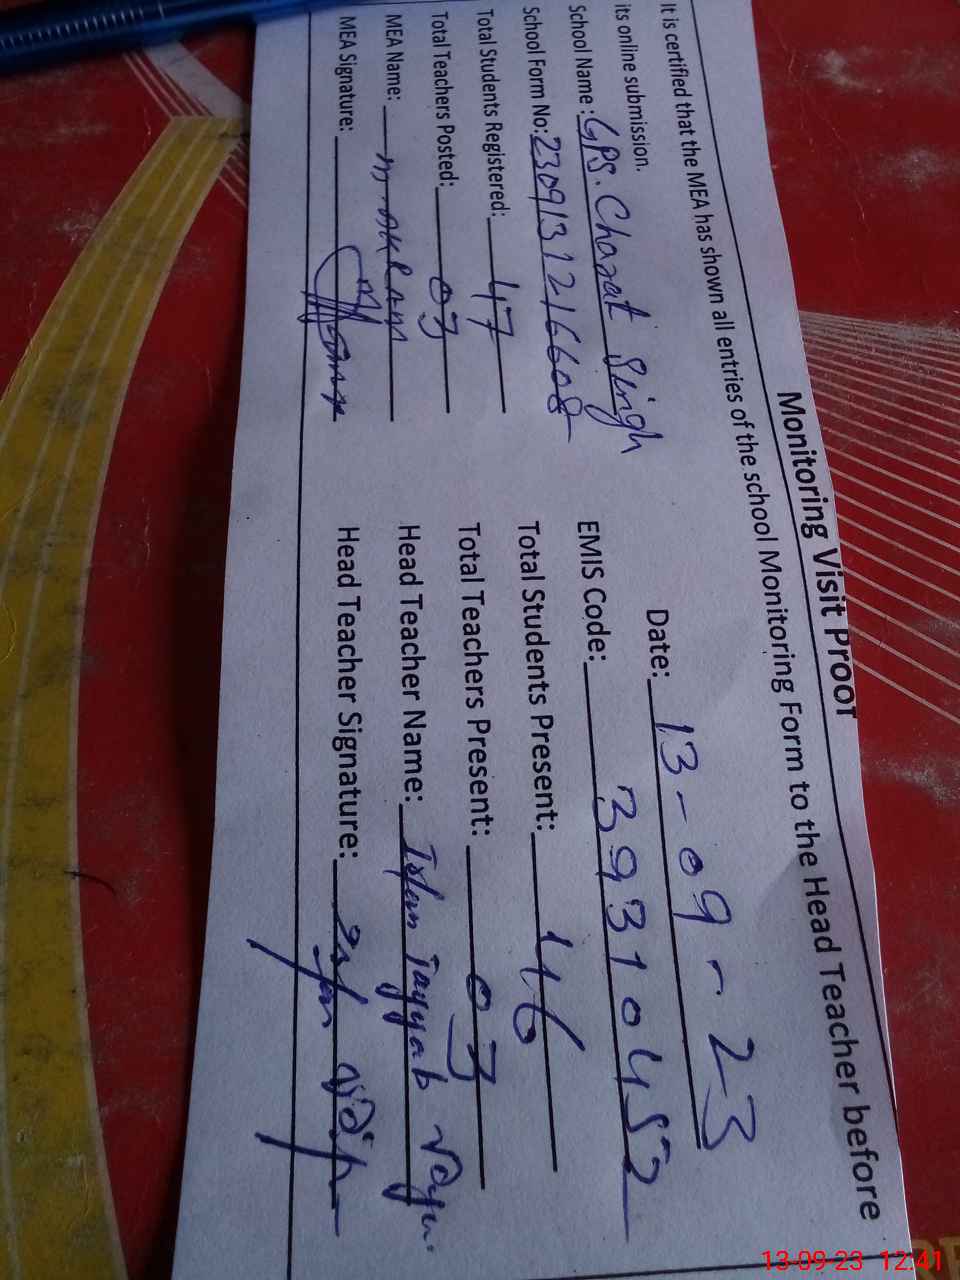 Monitoring Visit Proof
It is certified that the MEA has shown all entries of the school Monitoring Form to the Head Teacher before
its online submission.
Date: 13-09-23
School Name: GPS. Charat Singh
EMIS Code: 39310452
School Form No: 2309131216608
Total Students Present: 46
Total Students Registered: 47
Total Teachers Present: 03
Total Teachers Posted: 03
Head Teacher Name: Tayyab
MEA Name: M. AKRAM
Head Teacher Signature:
MEA Signature:
13-09-23 12:41